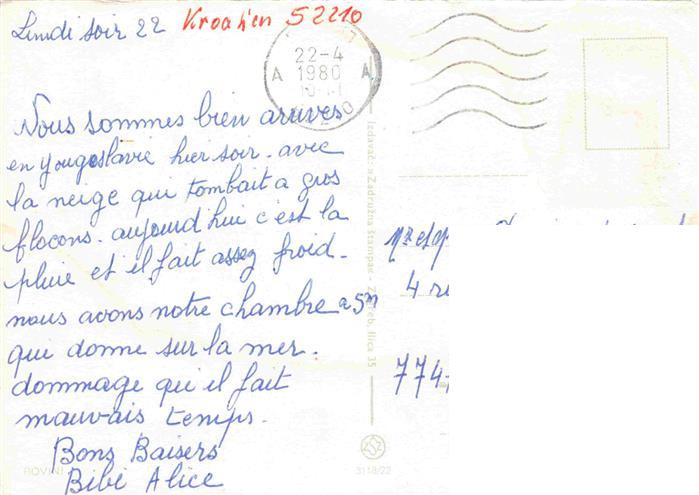 Lundi soir 22
Kroatien 52210
22-4
1980
A A
Nous sommes bien arrives
en yougoslavie hier soir. avec
la neige qui tombait a gros
flocons. aujourd hui c'est la
pluie et il fait assez froid.
nous avons notre chambre a 5m
qui donne sur la mer.
dommage qu'il fait
mauvais temps.
Bons Baisers
Bibi Alice
Izdavač: »Zadružna štampa« - Zagreb, Ilica 35
4
774
ROVINJ
3118/22